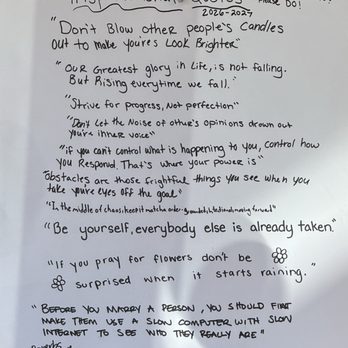 Please Do!
2026-2027
"Don't Blow other people's Candles
Out to make youre's Look Brighter"
"Our Greatest glory in Life, is not falling.
But Rising everytime we fall."
"Strive for progress, Not perfection"
"Don't Let the Noise of other's opinions drown out
youre inner voice"
"if you can't control what is happening to you, control how
you Respond. That's where your power is"
Obstacles are those frightful things you see when you
take you're eyes off the goal"
"In the middle of chaos, keep it
"Be yourself, everybody else is already taken."
"If you pray for flowers don't be
surprised when it starts raining."
"Before you marry a person, you should first
make them use a slow computer with slow
internet to see who they really are"